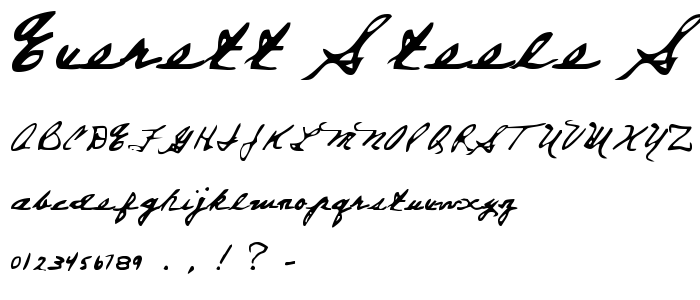 Everett Steele S
ABCDEFGHIJKLMNOPQRSTUVWXYZ
abcdefghijklmnopqrstuvwxyz
0123456789 . , ! ? -